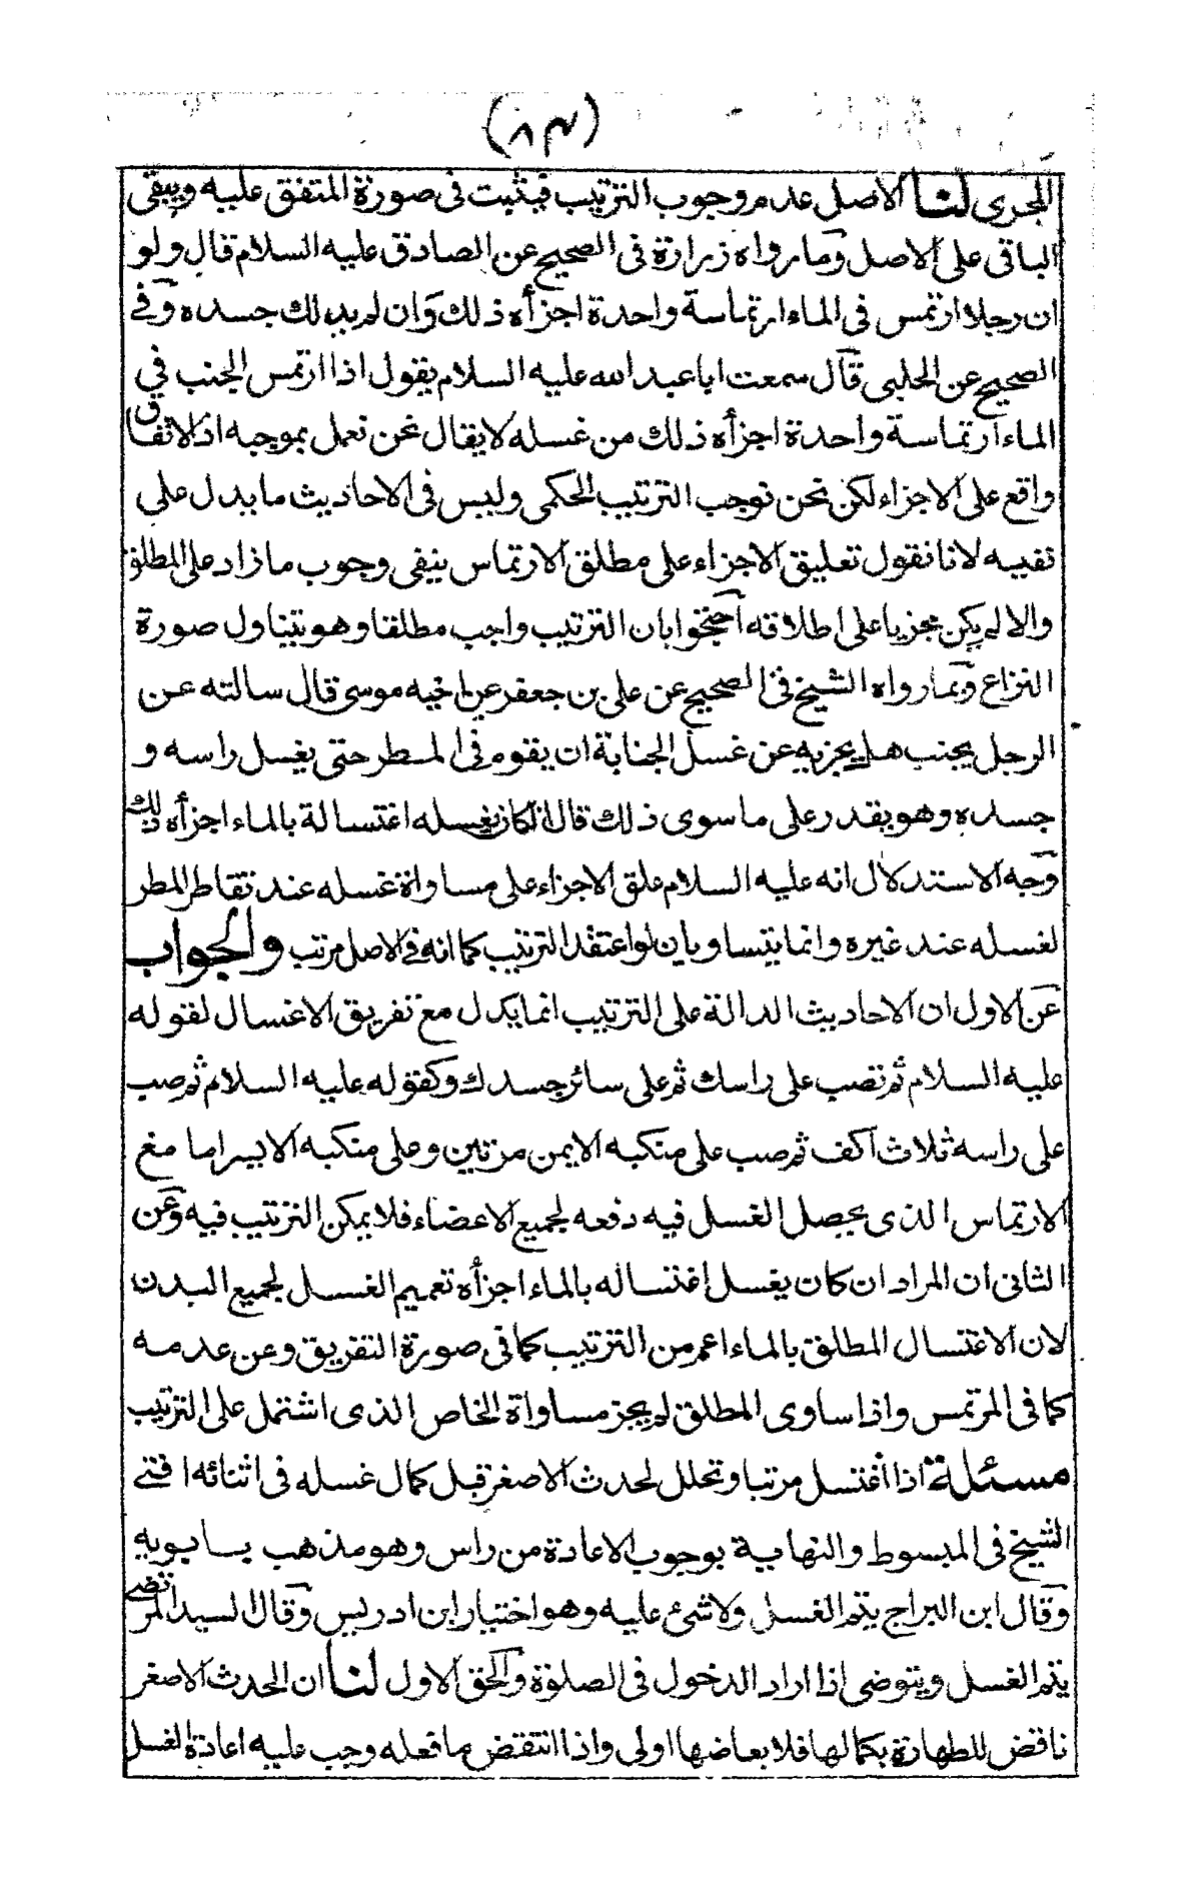 (٨٣)
المجرى لنا الاصل عدم وجوب الترتيب فيثبت فى صورة المتفق عليه ويبقى
الباقى على الاصل وما رواه زرارة فى الصحيح عن الصادق عليه السلام قال ولو
ان رجلا ارتمس فى الماء ارتماسة واحدة اجزأه ذلك وان لم يدلك جسده وفي
الصحيح عن الحلبى قال سمعت ابا عبد الله عليه السلام يقول اذا ارتمس الجنب في
الماء ارتماسة واحدة اجزأه ذلك من غسله لا يقال نحن نعمل بموجبه اذ الاتفاق
واقع على الاجزاء لكن نحن نوجب الترتيب الحكمى وليس فى الاحاديث ما يدل على
نفييه لانا نقول تعليق الاجزاء على مطلق الارتماس ينفى وجوب ما زاد على المطلق
والا لم يكن مجزيا على اطلاقه احتجوا بان الترتيب واجب مطلقا وهو يتناول صورة
النزاع وبما رواه الشيخ فى الصحيح عن على بن جعفر عن اخيه موسى قال سالته عن
الرجل يجنب هل يجزيه عن غسل الجنابة ان يقوم فى المطر حتى يغسل راسه و
جسده وهو يقدر على ما سوى ذلك قال ان كان يغسله اغتسالة بالماء اجزأه ذلك
وجه الاستدلال انه عليه السلام علق الاجزاء على مساواة غسله عند تقاطر المطر
لغسله عند غيره وانما يتساويان لو اعتقد الترتيب كما انه في الاصل مرتب والجواب
عن الاول ان الاحاديث الدالة على الترتيب انما يدل مع تفريق الاغسال لقوله
عليه السلام ثم تصب على راسك ثم على سائر جسدك وكقوله عليه السلام ثم صب
على راسه ثلاث اكف ثم صب على منكبه الايمن مرتين وعلى منكبه الايسر اما مع
الارتماس الذى يحصل الغسل فيه دفعه لجميع الاعضاء فلا يمكن الترتيب فيه وعن
الثانى ان المراد ان كان يغسل اغتساله بالماء اجزأه تعميم الغسل لجميع البدن
لان الاغتسال المطلق بالماء اعم من الترتيب كما فى صورة التفريق وعن عدمه
كما فى المرتمس واذا ساوى المطلق لم يجز مساواة الخاص الذى اشتمل على الترتيب
مسئلة اذا اغتسل مرتبا وتخلل لحدث الاصغر قبل كمال غسله فى اثنائه افتى
الشيخ فى المبسوط والنهاية بوجوب الاعادة من راس وهو مذهب بابويه
وقال ابن البراج يتم الغسل ولا شئ عليه وهو اختيار ابن ادريس وقال السيد المرتضى
يتم الغسل ويتوضى اذا اراد الدخول فى الصلوة والحق الاول لنا ان الحدث الاصغر
ناقض للطهارة بكمالها فلابعاضها اولى واذا انتقض ما فعله وجب عليه اعادة الغسل